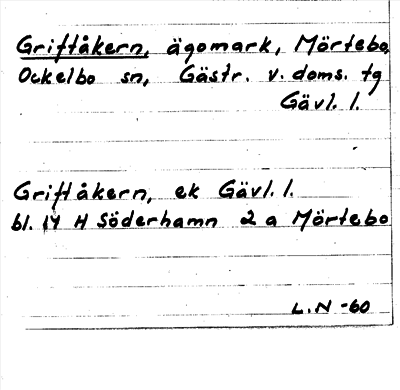 Griftåkern, ägomark, Mörtebo,
Ockelbo sn, Gästr. v. doms. tg
Gävl. l.
Griftåkern, ek Gävl. l.
bl. 14 H Söderhamn 2 a Mörtebo
L.N -60